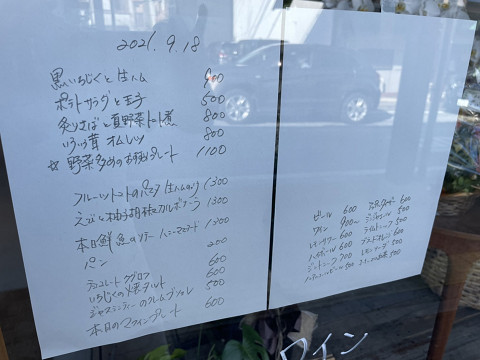 2021.9.18
黒いちじくと生ハム 900
ポテトサラダと玉子 500
炙りさばと夏野菜トマト煮 800
いろいろ茸オムレツ 800
☆野菜多めのお摘みプレート 1100
フルーツトマトのパスタ 生ハムのせ 1300
えごまと柚子胡椒のカルボナーラ 1300
本日鮮魚のソテー ハニーマスタード 1300
パン 200
チョコレートテリーヌ 600
いちじくの焼タルト 600
ジャスミンティーのクレームブリュレ 500
本日のマフィンプレート 600
ビール 600
ワイン 900〜
レモンサワー 600
ハイボール 600
ジントニック 700
ノンアルコールビール 500
ジンジャエール 500
ライムトニック 500
レモンソーダ 500
ワイン